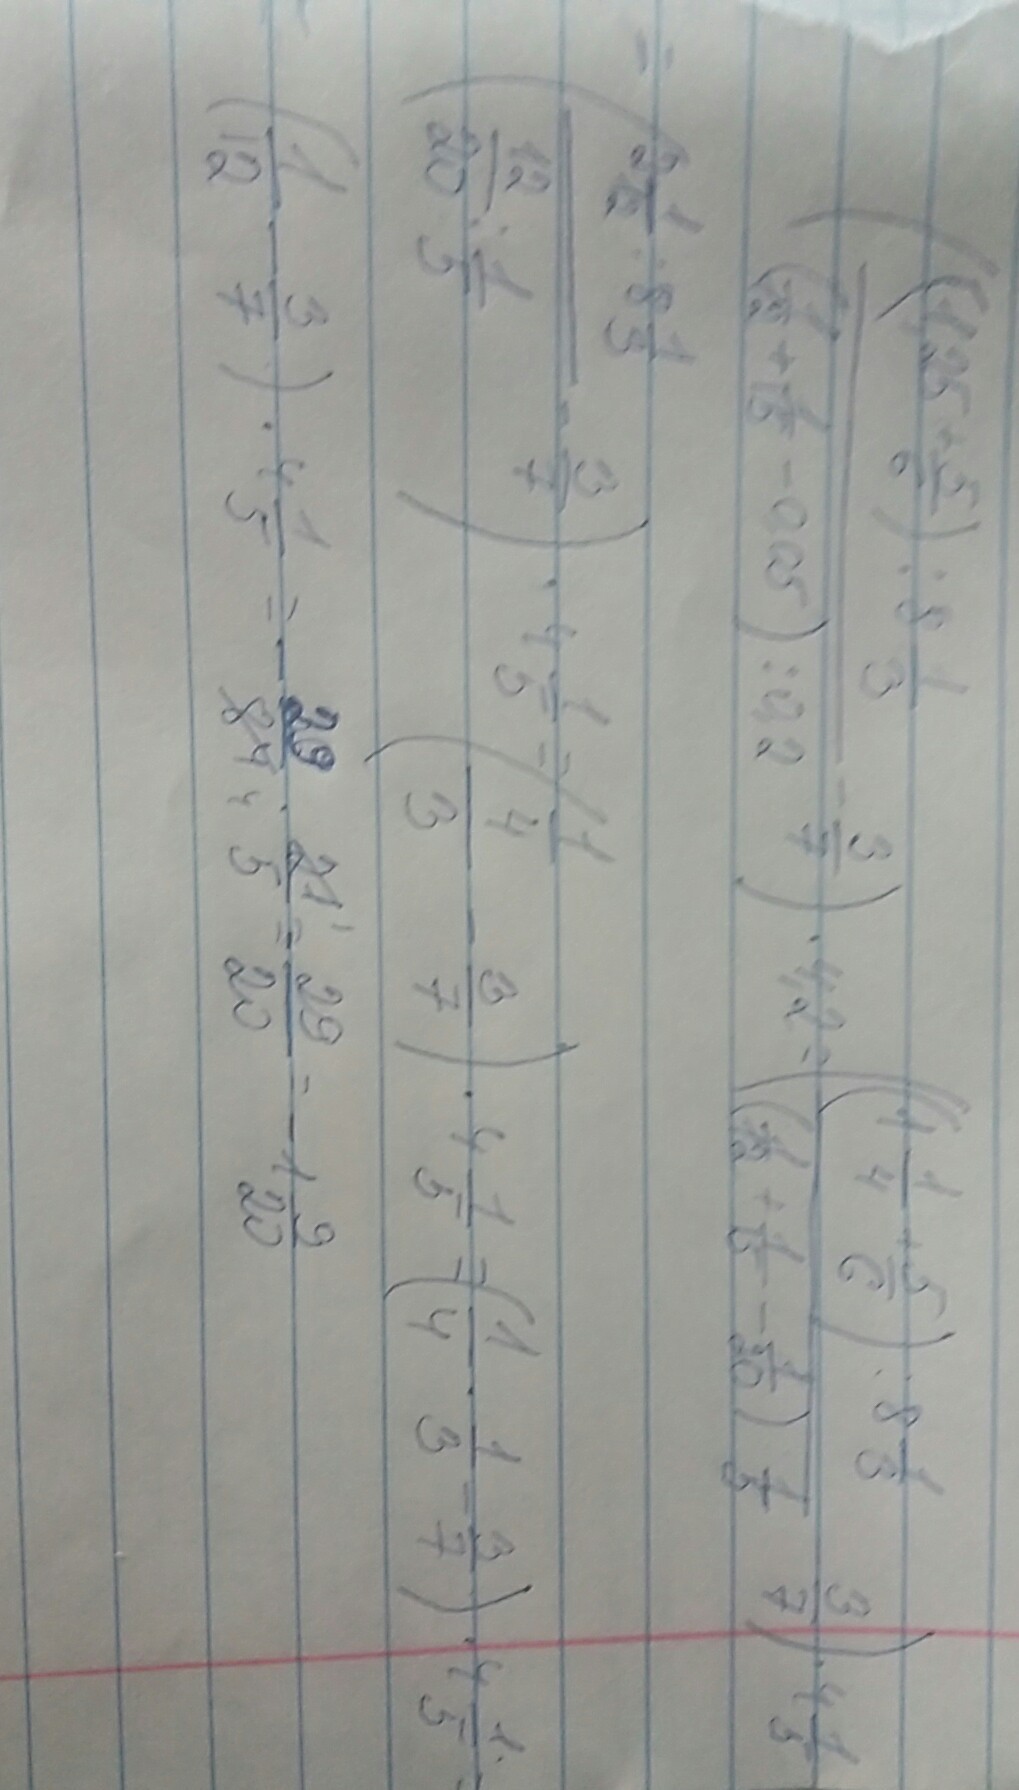 ((1,25 + 5/6) : 8 1/3
(1/12 + 1/15 - 0,05) : 0,2 - 3/7) · 4,2 = ((1 1/4 + 5/6) : 8 1/3
(1/12 + 1/15 - 1/20) 1/5 3/7) · 4 1/5
= (2 1/12 : 8 1/3
12/20 : 1/5 - 3/7) · 4 1/5 = (1/4
3 - 3/7) · 4 1/5 = (1/4 · 1/3 - 3/7) · 4 1/5 =
(1/12 - 3/7) · 4 1/5 = - 29/84 4 · 21 1/5 = 29/20 = - 1 9/20